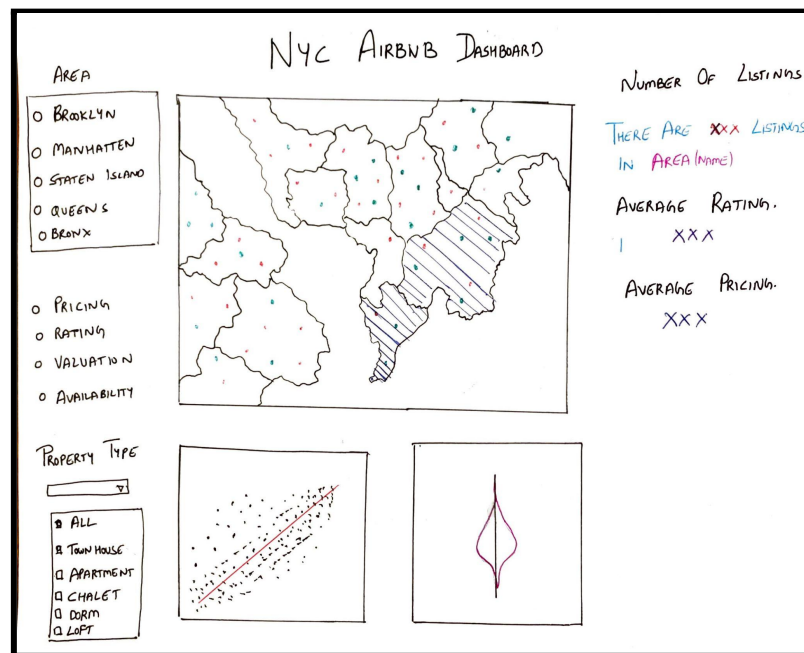 NYC AIRBNB DASHBOARD
AREA
BROOKLYN
MANHATTEN
STATEN ISLAND
QUEENS
BRONX
PRICING
RATING
VALUATION
AVAILABILITY
PROPERTY TYPE
ALL
TOWNHOUSE
APARTMENT
CHALET
DORM
LOFT
NUMBER OF LISTINGS
THERE ARE XXX LISTINGS
IN AREA(NAME)
AVERAGE RATING.
XXX
AVERAGE PRICING.
XXX